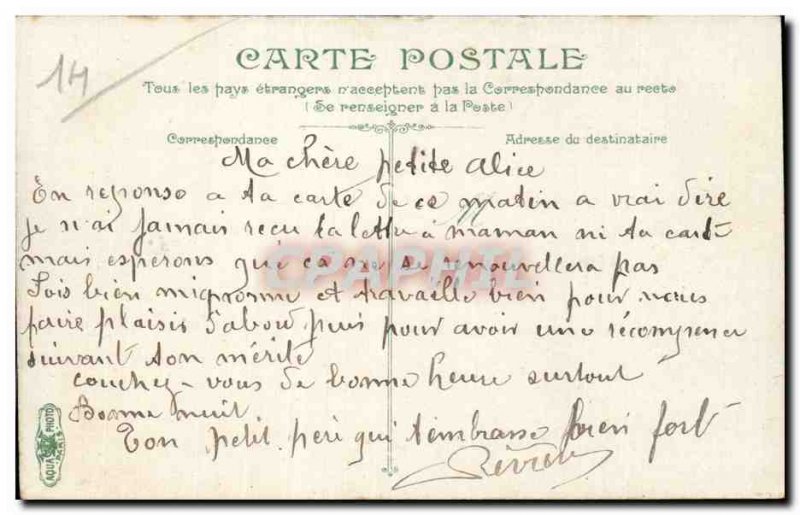 14
CARTE POSTALE
Tous les pays étrangers n'acceptent pas la Correspondance au recto
(Se renseigner à la Poste)
Correspondance
Adresse du destinataire
Ma chère petite Alice
En reponse a ta carte de ce matin a vrai dire
je n'ai jamais recu ta lettre à maman ni ta carte
mais esperons que ca ne se renouvellera pas
Sois bien mignonne et travaille bien pour nous
faire plaisir d'abord puis pour avoir une récompense
suivant ton mérite
couchez-vous de bonne heure surtout
Bonne nuit
Ton petit père qui t'embrasse bien fort
CPAPHIL
AQUA PHOTO
PARIS